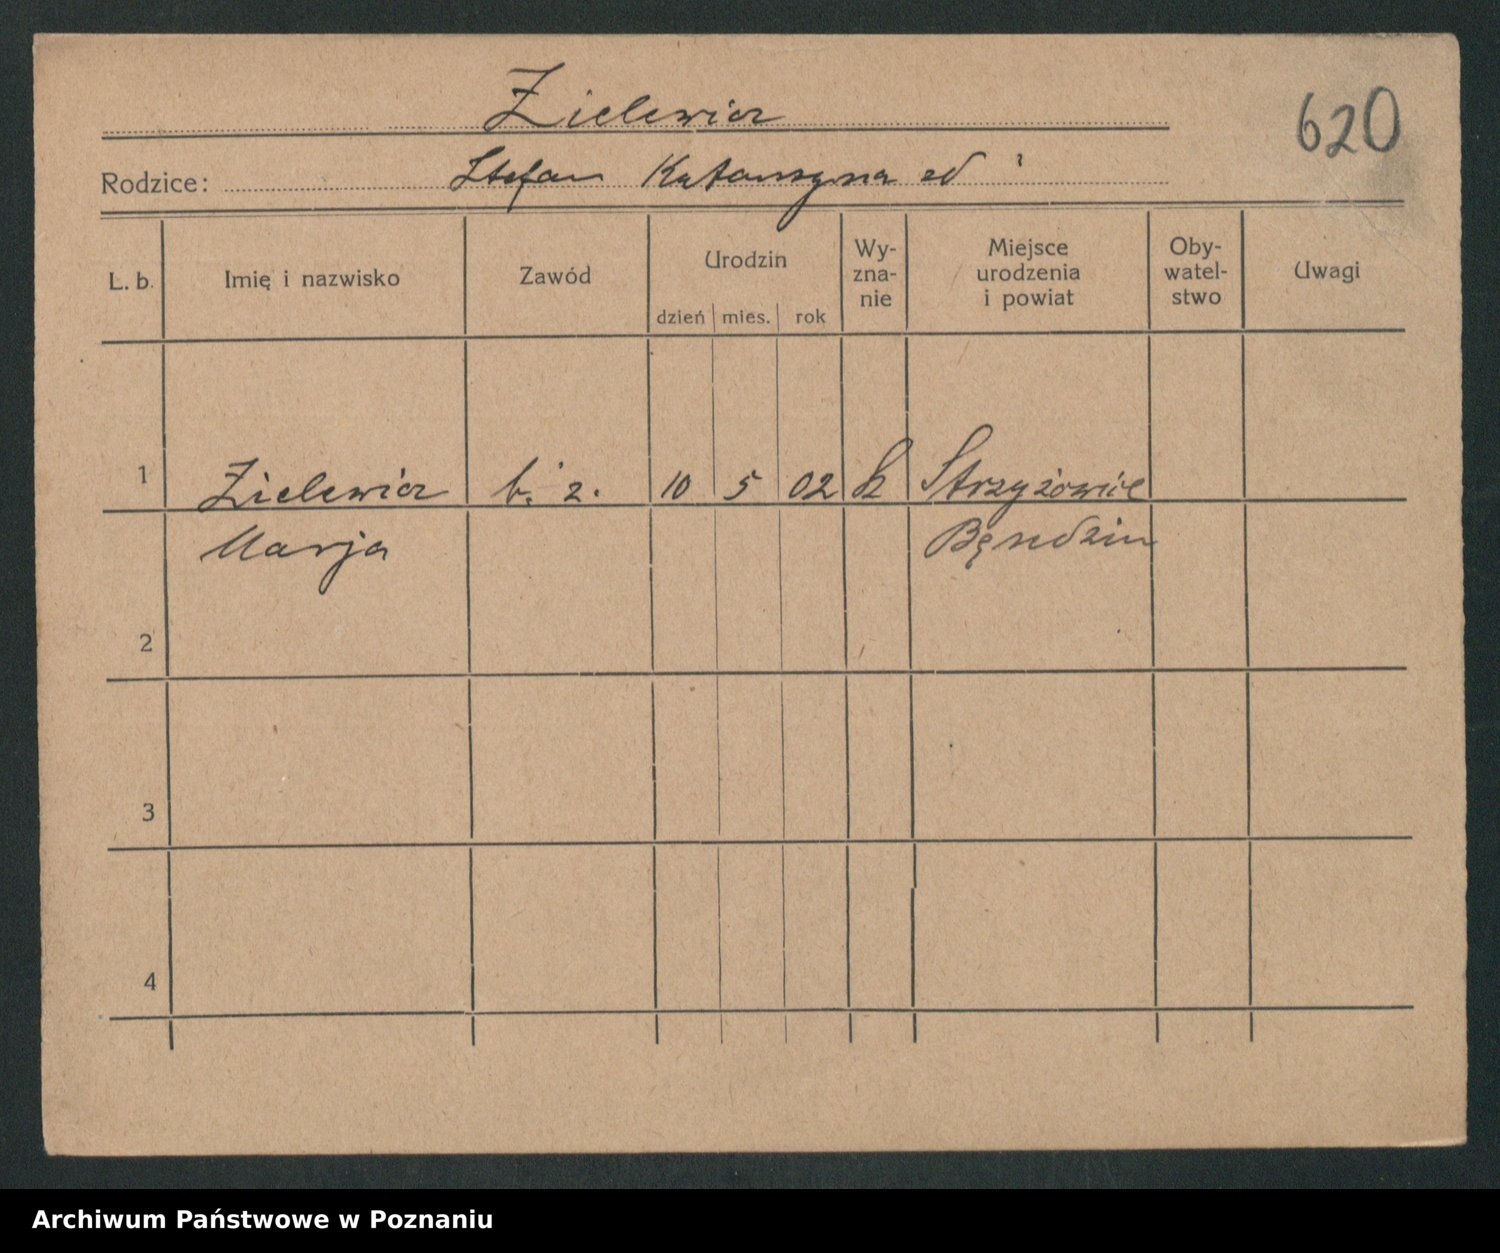 Zielewicz
620
Rodzice: Stefan Katarzyna zd ?
L. b. Imię i nazwisko Zawód Urodzin dzień mies. rok Wy-
zna-
nie Miejsce
urodzenia
i powiat Oby-
watel-
stwo Uwagi
1 Zielewicz b. z. 10 5 02 k Strzyżowice
Marja Bęndzin
2
3
4
Archiwum Państwowe w Poznaniu